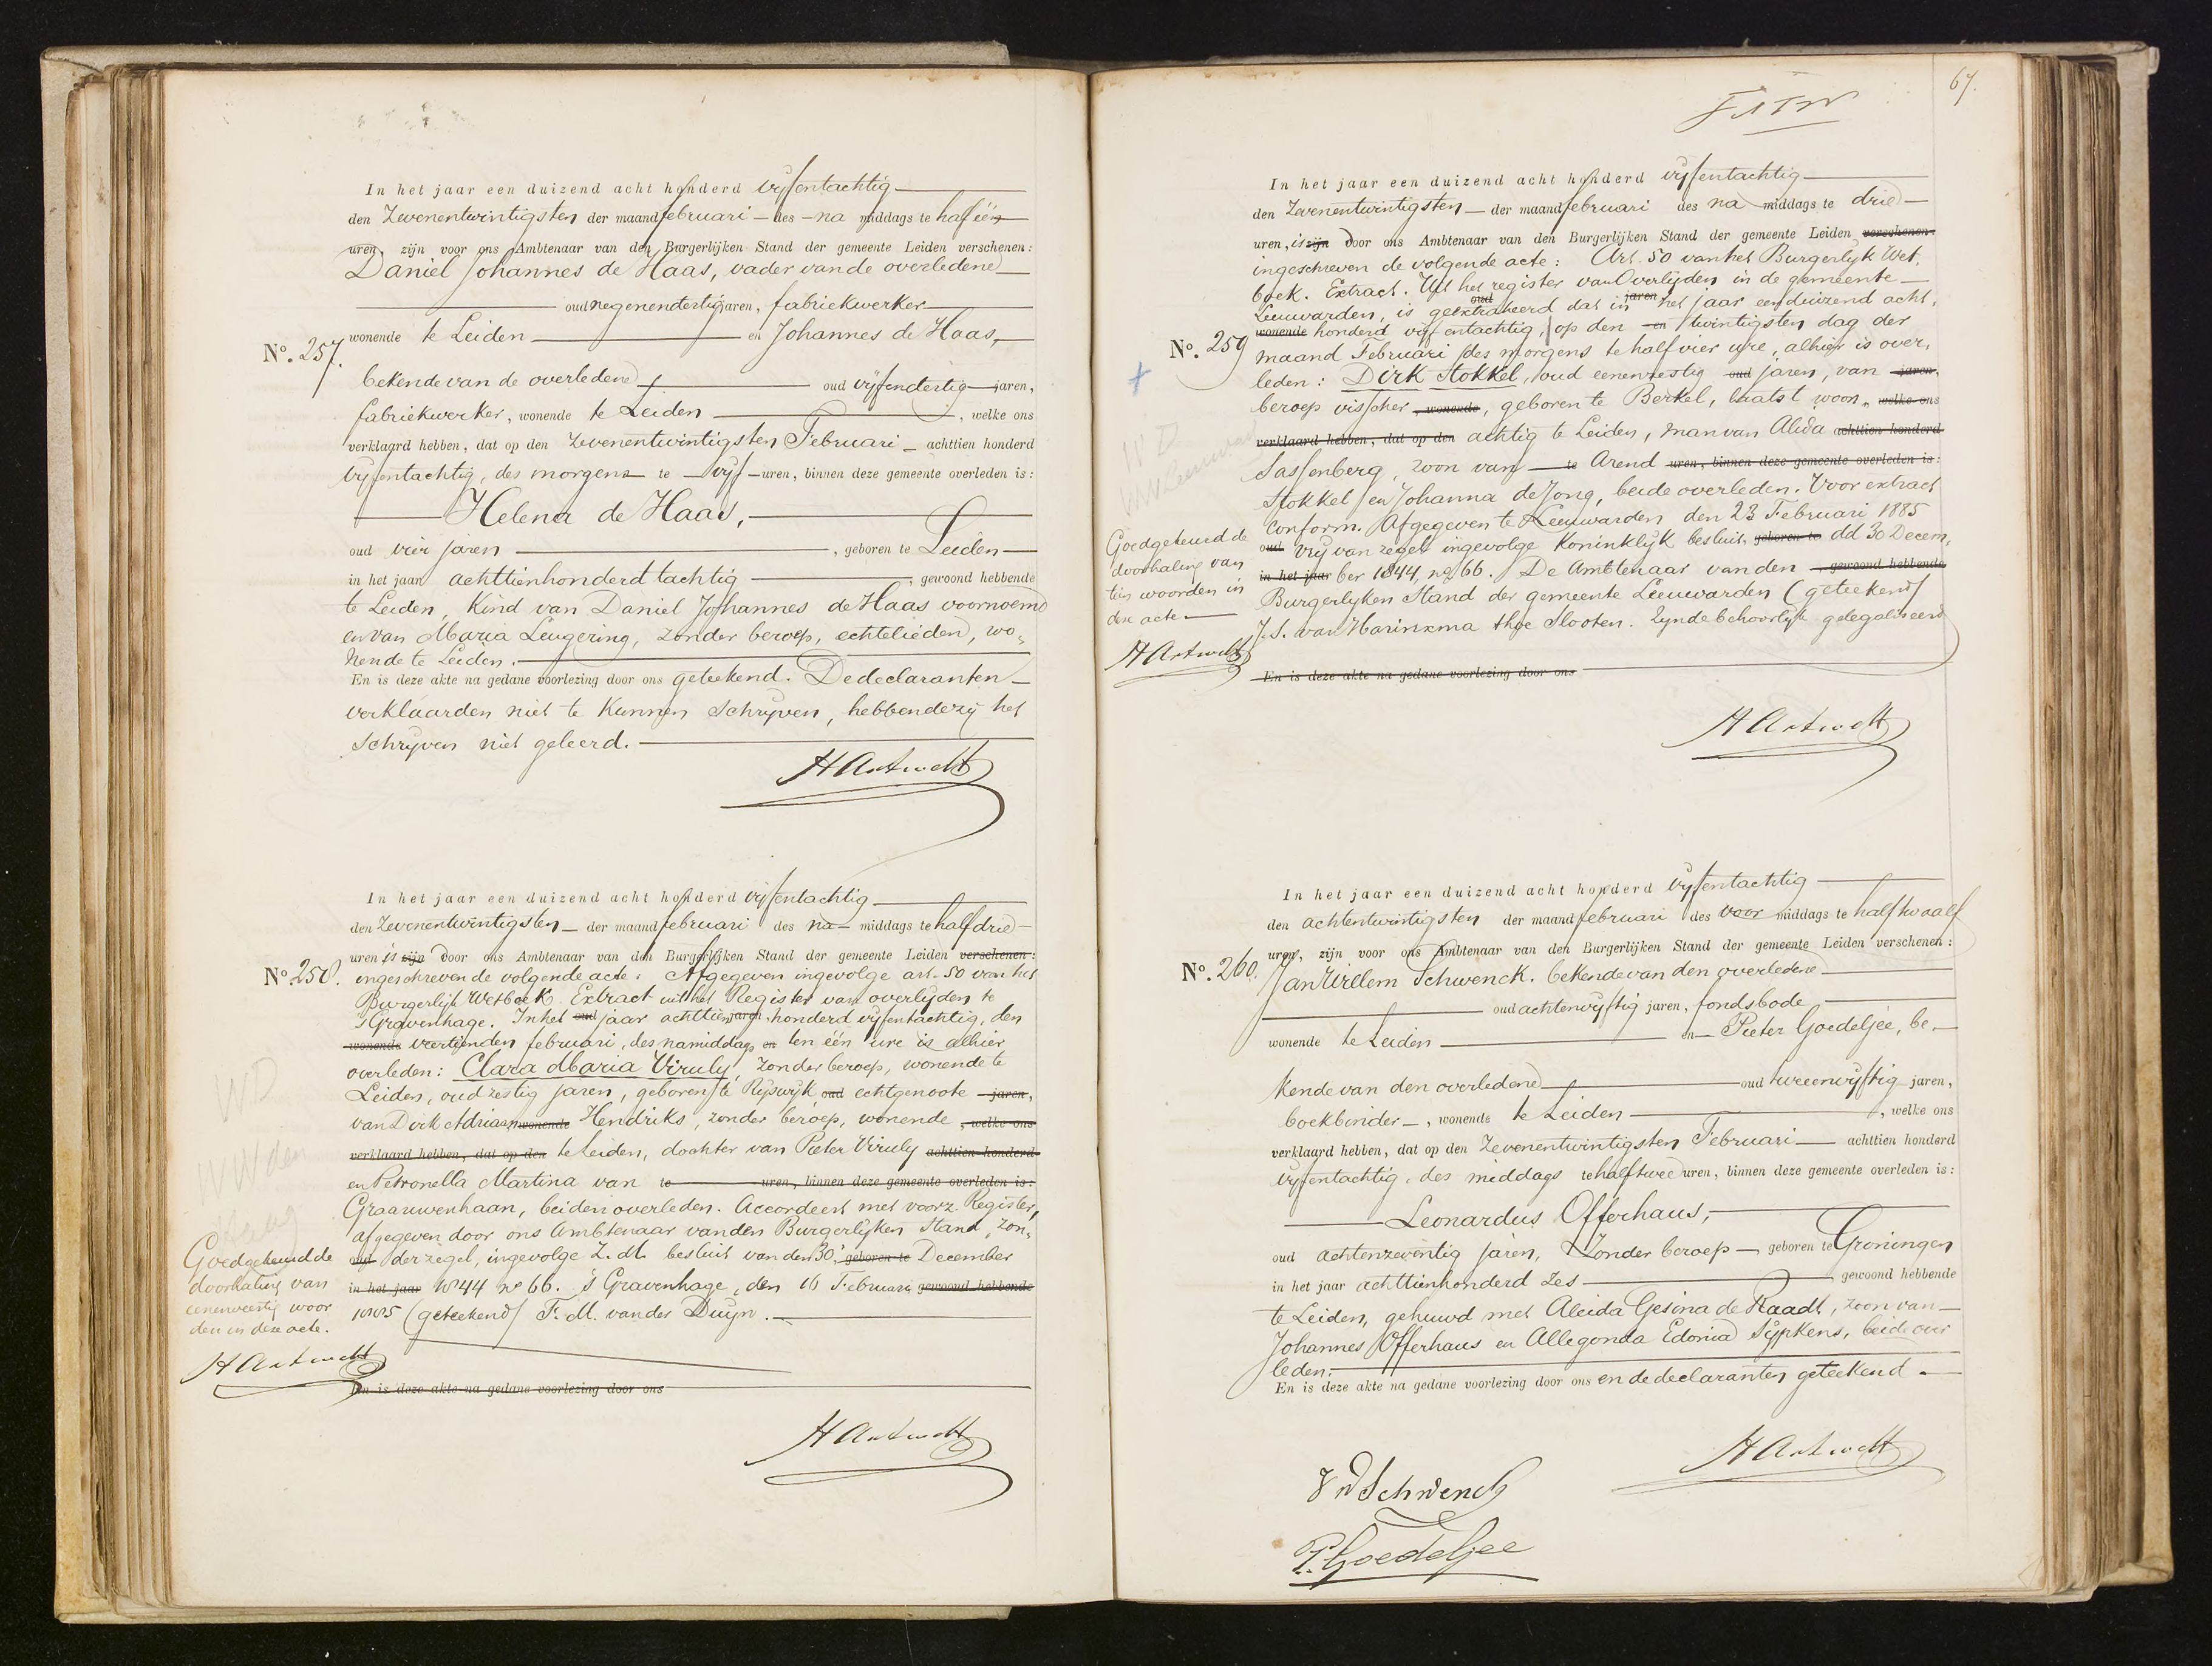 In het jaar een duizend acht honderd vijfentachtig
den Zevenentwintigsten der maand februari des na middags te half één
uren, zijn voor ons Ambtenaar van den Burgerlijken Stand der gemeente Leiden verschenen:
Daniel Johannes de Haas, vader van de overledene
oud negenendertig jaren, fabriekwerker
wonende te Leiden en Johannes de Haas,
No. 257.
bekende van de overledene oud vijfendertig jaren,
fabriekwerker, wonende te Leiden, welke ons
verklaard hebben, dat op den Zevenentwintigsten Februari achttien honderd
vijfentachtig, des morgens te vijf uren, binnen deze gemeente overleden is:
Helena de Haas,
oud vier jaren, geboren te Leiden
in het jaar achttienhonderd tachtig, gewoond hebbende
te Leiden, Kind van Daniel Johannes de Haas voornoemd
en van Maria Leugering, zonder beroep, echtelieden, wo„
nende te Leiden.
En is deze akte na gedane voorlezing door ons geteekend. De declaranten
verklaarden niet te Kunnen Schrijven, hebbende zij het
Schrijven niet geleerd.
In het jaar een duizend acht honderd vijfentachtig
den Zevenentwintigsten der maand februari des na middags te half drie
uren is zijn door ons Ambtenaar van den Burgerlijken Stand der gemeente Leiden verschenen:
No. 258.
ingeschreven de volgende acte: Afgegeven ingevolge art. 50 van het
Burgerlijk Wetboek. Extract uit het Register van overlijden te
's Gravenhage. In het oud jaar achttien jaren honderd vijfentachtig, den
wonende veertienden februari, des namiddags en ten één ure is alhier
overleden: Clara Maria Viruly, Zonder beroep, wonende te
Leiden, oud zestig jaren, geboren te Rijswijk, oud echtgenoote jaren,
van Dirk Adriaan wonende Hendriks, zonder beroep, wonende, welke ons
verklaard hebben, dat op den te Leiden, dochter van Pieter Viruly achttien honderd
en Petronella Martina van te uren, binnen deze gemeente overleden is:
Graauwenhaan, beiden overleden. Accordeert met voorz. Register,
afgegeven door ons Ambtenaar van den Burgerlijken Stand, zon„
oud der zegel, ingevolge Z. M. besluit van den 30. geboren te December
in het jaar 1844 no 66. 's Gravenhage, den 16 Februari gewoond hebbende
1885 (geteekend) F. M. van der Duijn.
Goedgekeurd de
doorhaling van
eenenveertig woor
den in deze acte.
En is deze akte na gedane voorlezing door ons
67.
In het jaar een duizend acht honderd vijfentachtig
den Zevenentwintigsten der maand februari des na middags te drie
uren, is zijn door ons Ambtenaar van den Burgerlijken Stand der gemeente Leiden verschenen:
ingeschreven de volgende acte: Art. 50 van het Burgerlijk Wet„
boek. Extract. Uit het register van Overlijden in de gemeente
Leeuwarden, is geëxtraheerd oud dat in jaren het jaar een duizend acht„
wonende honderd vijfentachtig, op den en twintigsten dag der
No. 259
maand Februari des morgens te half vier ure, alhier is over„
leden: Dirk Stokkel, oud eenenzestig oud jaren, van jaren,
beroep visscher, wonende, geboren te Berkel, laatst woon„ welke ons
verklaard hebben, dat op den achtig te Leiden, man van Alida achttien honderd
Sassenberg, zoon van te Arend uren, binnen deze gemeente overleden is:
Stokkel en Johanna de Jong, beide overleden. Voor extract
conform. Afgegeven te Leeuwarden den 23 Februari 1885
oud vrij van zegel ingevolge Koninklijk besluit, geboren te dd 30 Decem„
in het jaar ber 1844, no 66. De Ambtenaar van den gewoond hebbende
Burgerlijken Stand der gemeente Leeuwarden (geteekend)
J. S. van Harinxma thoe Slooten. Zijnde behoorlijk gelegaliseerd
Goedgekeurd de
doorhaling van
tien woorden in
den acte
En is deze akte na gedane voorlezing door ons
In het jaar een duizend acht honderd vijfentachtig
den achtentwintigsten der maand februari des voor middags te half twaalf
uren, zijn voor ons Ambtenaar van den Burgerlijken Stand der gemeente Leiden verschenen:
No. 260.
Jan Willem Schwenck, bekende van den overledene
oud achtenvijftig jaren, fondsbode
wonende te Leiden en Pieter Goedeljée, be„
kende van den overledene oud tweenvijftig jaren,
boekbinder, wonende te Leiden, welke ons
verklaard hebben, dat op den Zevenentwintigsten Februari achttien honderd
vijfentachtig, des middags te half twee uren, binnen deze gemeente overleden is:
Leonardus Offerhaus,
oud achtenzeventig jaren, Zonder beroep geboren te Groningen
in het jaar achttienhonderd zes gewoond hebbende
te Leiden, gehuwd met Aleida Gesina de Raadt, zoon van
Johannes Offerhaus en Allegonda Edonia Sypkens, beide over
leden.
En is deze akte na gedane voorlezing door ons en de declaranten geteekend.
JW Schwenck
P. Goedeljee